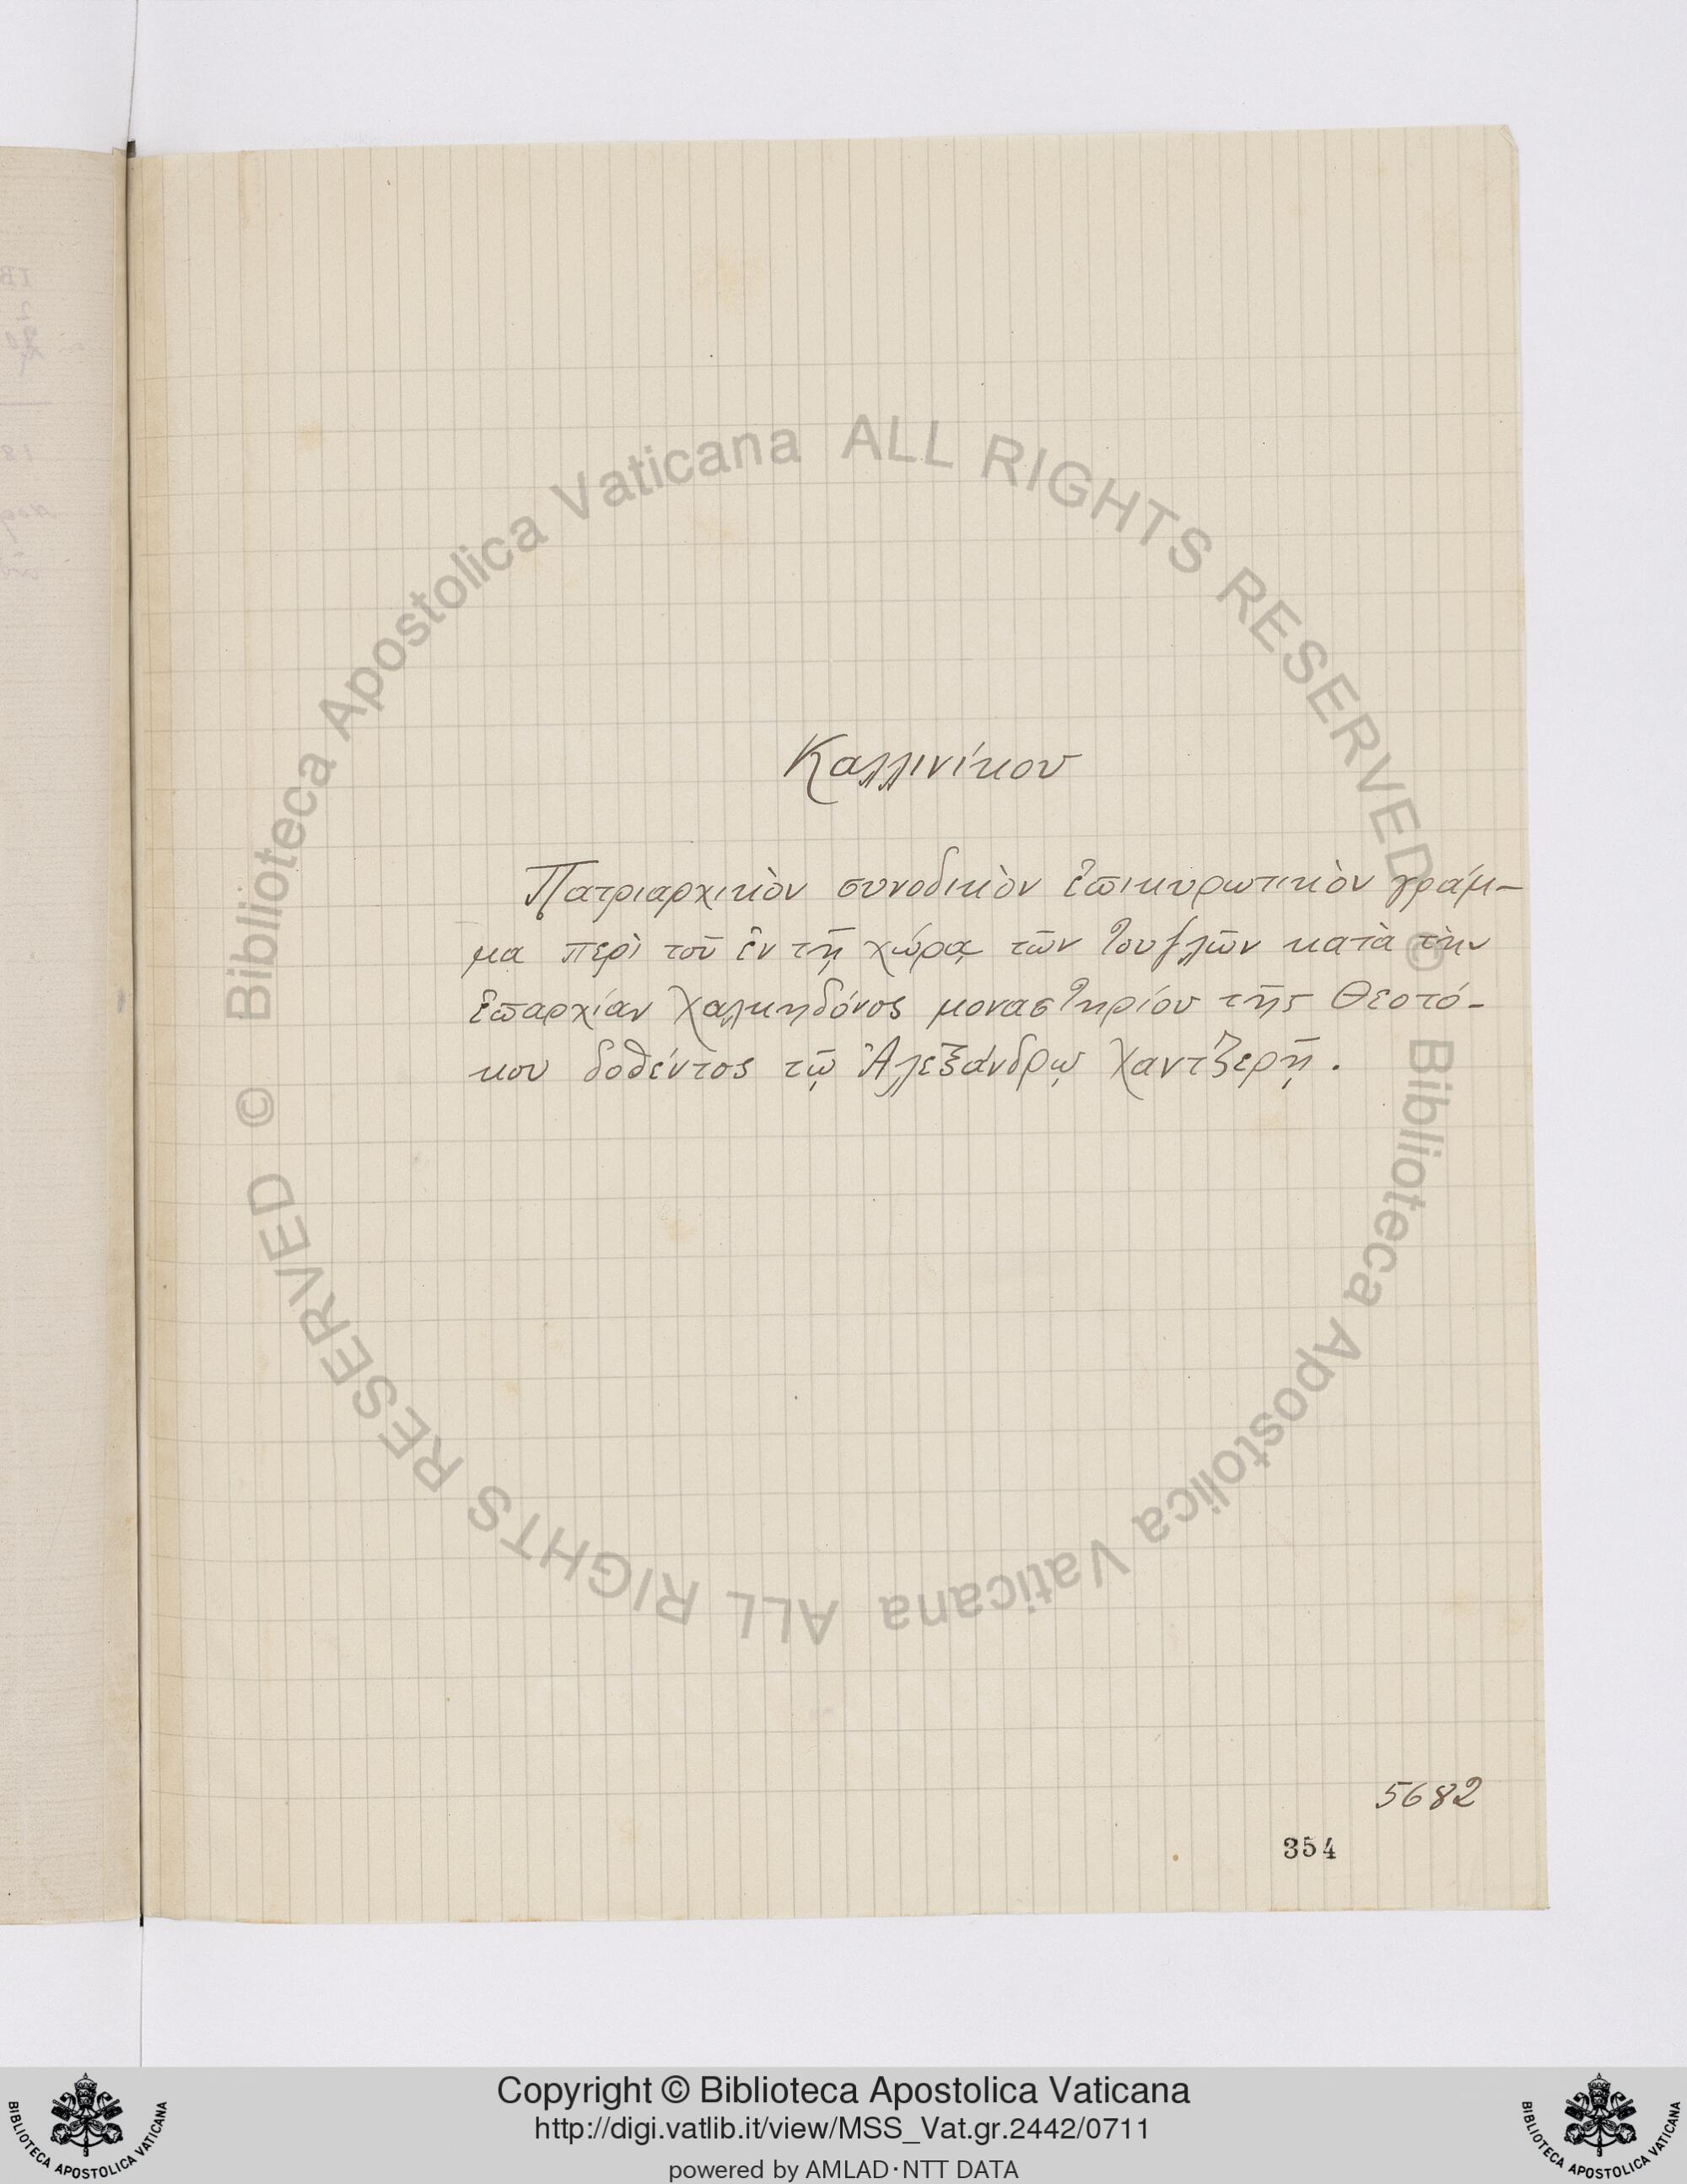 Καλλινίκου
Πατριαρχικὸν συνοδικὸν ἐπικυρωτικὸν γράμ-
μα περὶ τοῦ ἐν τῇ χώρᾳ τῶν Τουζλῶν κατὰ τὴν
ἐπαρχίαν Χαλκηδόνος μοναστηρίου τῆς Θεοτό-
κου δοθέντος τῷ Ἀλεξάνδρῳ Χαντζερῇ.
5682
354
© Biblioteca Apostolica Vaticana ALL RIGHTS RESERVED
© Biblioteca Apostolica Vaticana ALL RIGHTS RESERVED
Copyright © Biblioteca Apostolica Vaticana
http://digi.vatlib.it/view/MSS_Vat.gr.2442/0711
powered by AMLAD·NTT DATA
BIBLIOTECA APOSTOLICA VATICANA
BIBLIOTECA APOSTOLICA VATICANA